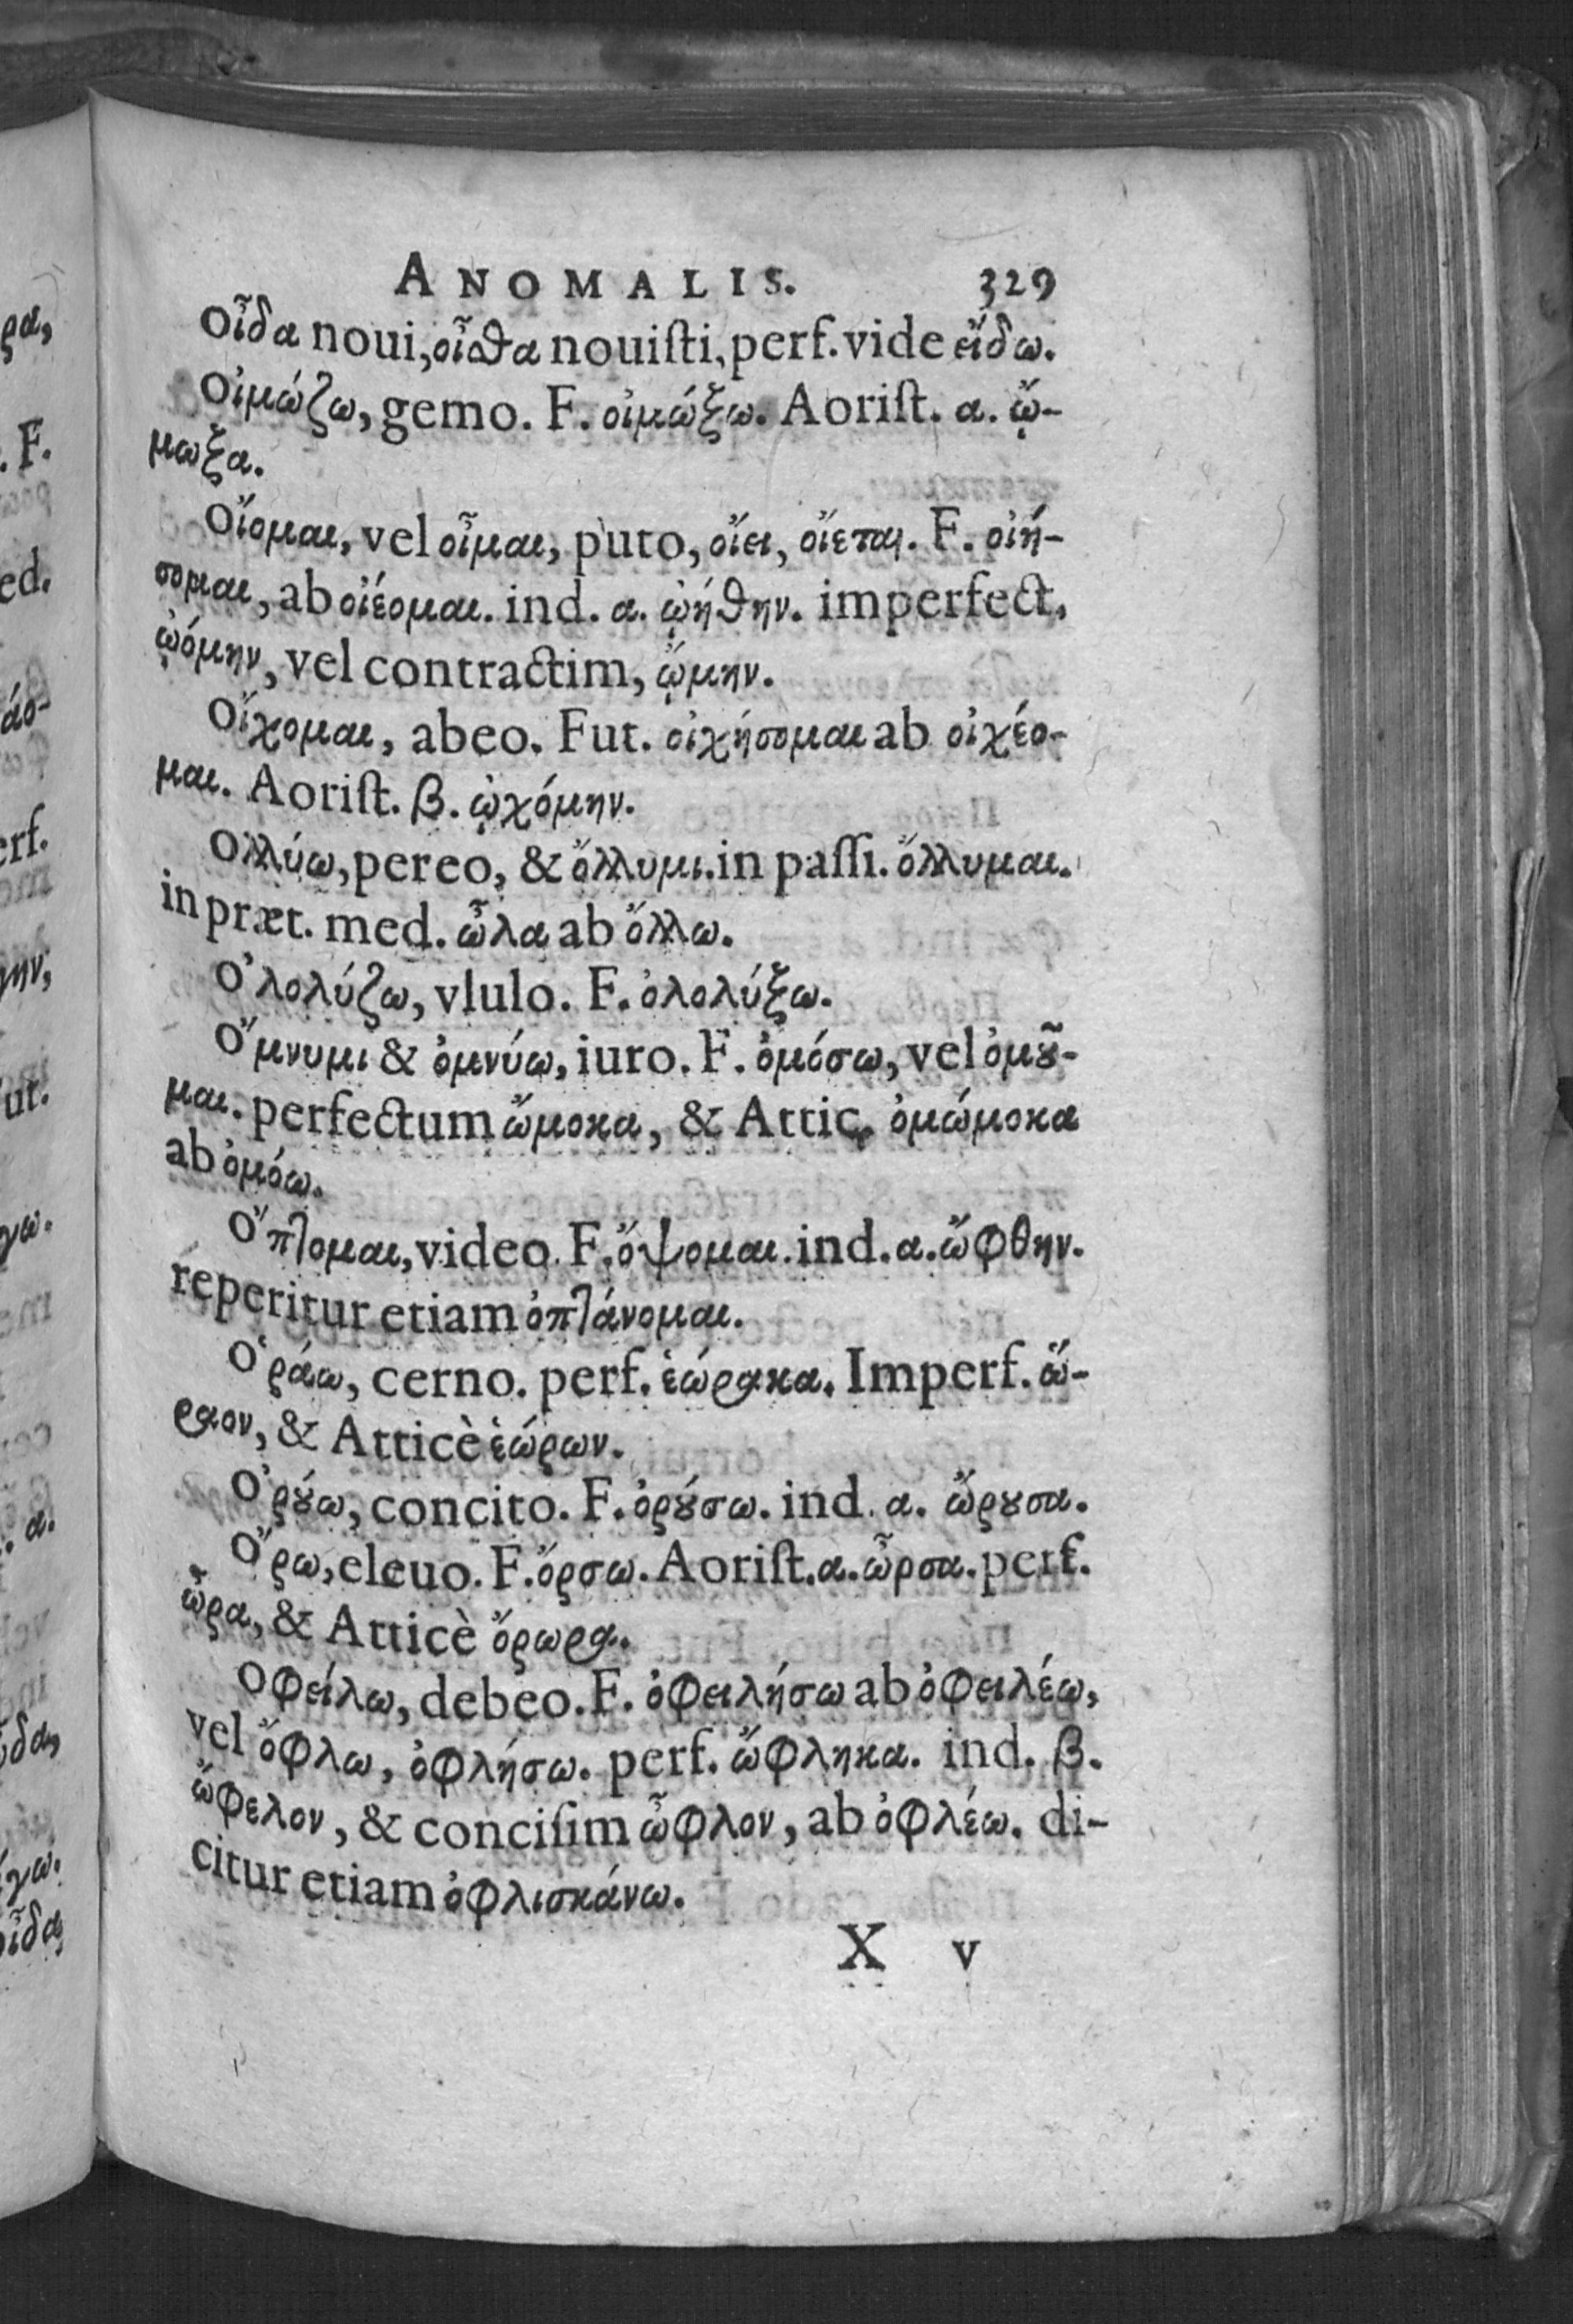 ANOMALIS. 329
Οἶδα noui, οἶσθα nouiſti, perf. vide εἴδω.
Οἰμώζω, gemo. F. οἰμώξω. Aoriſt. α. ᾤ-
μωξα.
Οἴομαι, vel οἶμαι, puto, οἴει, οἴεται. F. οἰή-
σομαι, ab οἰέομαι. ind. α. ᾠήθην. imperfect.
ᾠόμην, vel contractim, ᾤμην.
Οἴχομαι, abeo. Fut. οἰχήσομαι ab οἰχέο-
μαι. Aoriſt. β. ᾠχόμην.
Ολλύω, pereo, & ὄλλυμι. in paſſi. ὄλλυμαι.
in præt. med. ὦλα ab ὄλλω.
Ὀλολύζω, vlulo. F. ὀλολύξω.
Ὄμνυμι & ὀμνύω, iuro. F. ὀμόσω, vel ὀμοῦ-
μαι. perfectum ὤμοκα, & Attic. ὀμώμοκα
ab ὀμόω.
Ὄπτομαι, video. F. ὄψομαι. ind. α. ὤφθην.
reperitur etiam ὀπτάνομαι.
Ὁράω, cerno. perf. ἑώρακα. Imperf. ὥ-
ραον, & Atticè ἑώρων.
Ὀρούω, concito. F. ὀρούσω. ind. α. ὤρουσα.
Ὄρω, eleuo. F. ὄρσω. Aoriſt. α. ὦρσα. perf.
ὦρα, & Atticè ὄρωρα.
Οφείλω, debeo. F. ὀφειλήσω ab ὀφειλέω,
vel ὄφλω, ὀφλήσω. perf. ὤφληκα. ind. β.
ὤφελον, & conciſim ὦφλον, ab ὀφλέω. di-
citur etiam ὀφλισκάνω.
X v
ρα,
. F.
ed.
άο-
erf.
γην,
ut.
γω.
. α.
γω.
οἶδα